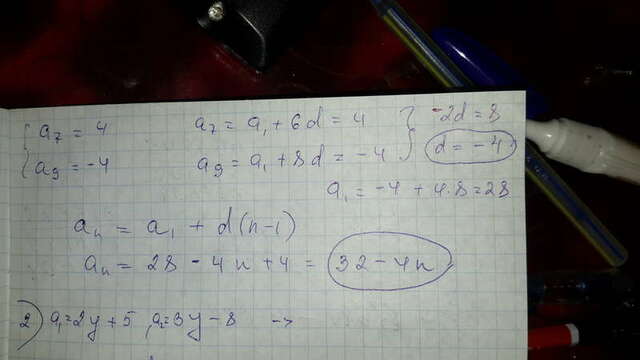 { a₇ = 4 a₇ = a₁ + 6d = 4 } -2d = 8
{ a₉ = -4 a₉ = a₁ + 8d = -4 } d = -4
a₁ = -4 + 4·8 = 28
aₙ = a₁ + d(n-1)
aₙ = 28 - 4n + 4 = 32 - 4n
2) a₁=2y+5, a₂=3y-8 ->